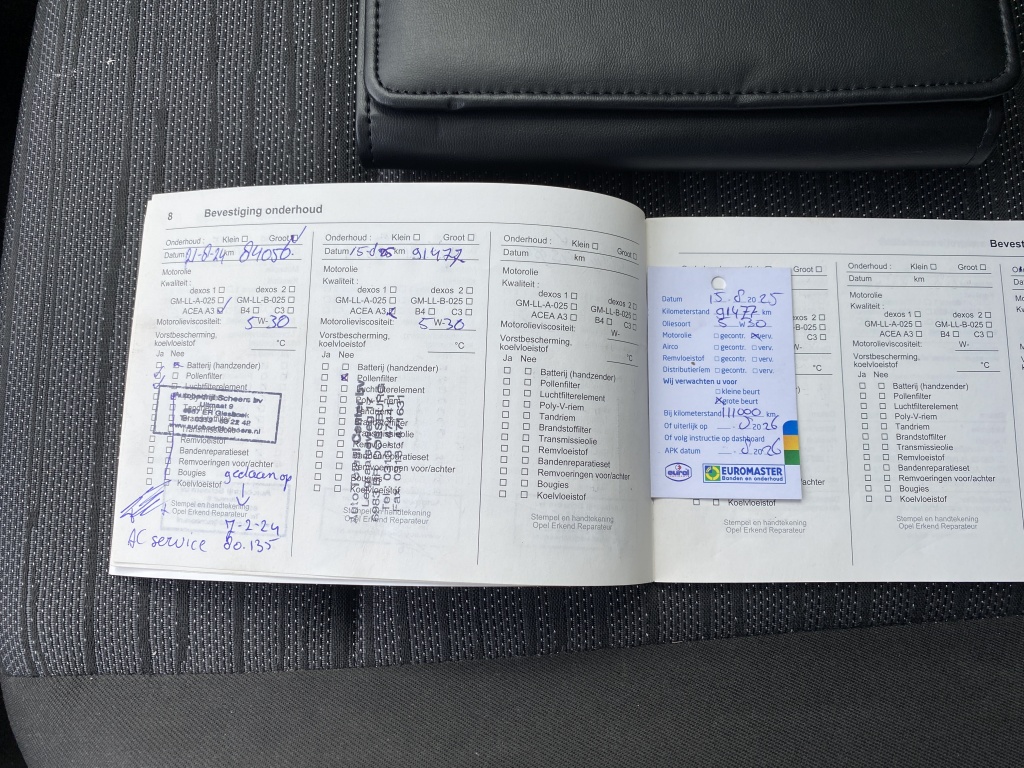 8 Bevestiging onderhoud
Onderhoud : Klein Groot
Datum 21-8-24 km 84056
Motorolie
Kwaliteit :
dexos 1 dexos 2
GM-LL-A-025 GM-LL-B-025
ACEA A3 B4 C3
Motorolieviscositeit: 5W-30
Vorstbescherming,
koelvloeistof °C
Ja Nee
Batterij (handzender)
Pollenfilter
Luchtfilterelement
Autobedrijf Scheers bv
www.autobedrijfscheers.nl
Remvloeistof
Bandenreparatieset
Remvoeringen voor/achter
Bougies gedaan op
Koelvloeistof
Stempel en handtekening
Opel Erkend Reparateur
7-2-24
AC service 80.135
Onderhoud : Klein Groot
Datum 15-8-25 km 91477
Motorolie
Kwaliteit :
dexos 1 dexos 2
GM-LL-A-025 GM-LL-B-025
ACEA A3 B4 C3
Motorolieviscositeit: 5W-30
Vorstbescherming,
koelvloeistof °C
Ja Nee
Batterij (handzender)
Pollenfilter
Luchtfilterelement
Poly-V-riem
Tandriem
Brandstoffilter
Transmissieolie
Remvloeistof
Bandenreparatieset
Remvoeringen voor/achter
Bougies
Koelvloeistof
Stempel en handtekening
Opel Erkend Reparateur
Onderhoud : Klein Groot
Datum km
Motorolie
Kwaliteit :
dexos 1 dexos 2
GM-LL-A-025 GM-LL-B-025
ACEA A3 B4 C3
Motorolieviscositeit: W-
Vorstbescherming,
koelvloeistof °C
Ja Nee
Batterij (handzender)
Pollenfilter
Luchtfilterelement
Poly-V-riem
Tandriem
Brandstoffilter
Transmissieolie
Remvloeistof
Bandenreparatieset
Remvoeringen voor/achter
Bougies
Koelvloeistof
Stempel en handtekening
Opel Erkend Reparateur
Datum 15-8-2025
Kilometerstand 91477 km
Oliesoort 5 W 30
Motorolie gecontr. verv.
Airco gecontr. verv.
Remvloeistof gecontr. verv.
Distributieriem gecontr. verv.
Wij verwachten u voor
kleine beurt
grote beurt
Bij kilometerstand 111000 km
Of uiterlijk op -8-2026
Of volg instructie op dashboard
APK datum -8-2026
eurol
EUROMASTER
Banden en onderhoud
Groot
dexos 2
GM-LL-B-025
C3
°C
voor/achter
Stempel en handtekening
Opel Erkend Reparateur
Onderhoud : Klein Groot
Datum km
Motorolie
Kwaliteit :
dexos 1 dexos 2
GM-LL-A-025 GM-LL-B-025
ACEA A3 B4 C3
Motorolieviscositeit: W-
Vorstbescherming,
koelvloeistof °C
Ja Nee
Batterij (handzender)
Pollenfilter
Luchtfilterelement
Poly-V-riem
Tandriem
Brandstoffilter
Transmissieolie
Remvloeistof
Bandenreparatieset
Remvoeringen voor/achter
Bougies
Koelvloeistof
Stempel en handtekening
Opel Erkend Reparateur